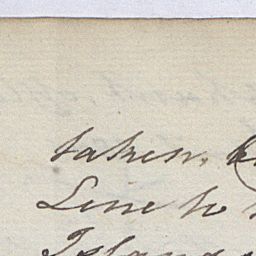 taken.
Line to
Island